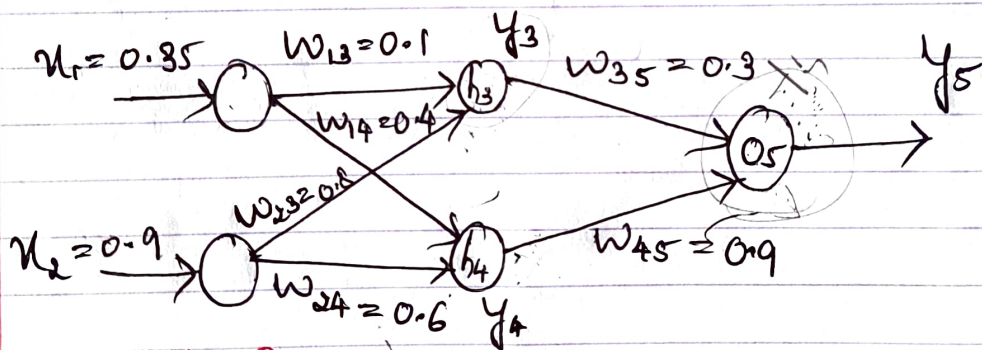 x₁ = 0.35
W₁₃ = 0.1
y₃
h₃
W₃₅ = 0.3
y₅
W₁₄ = 0.4
O₅
W₂₃ = 0.8
x₂ = 0.9
h₄
W₄₅ = 0.9
W₂₄ = 0.6
y₄